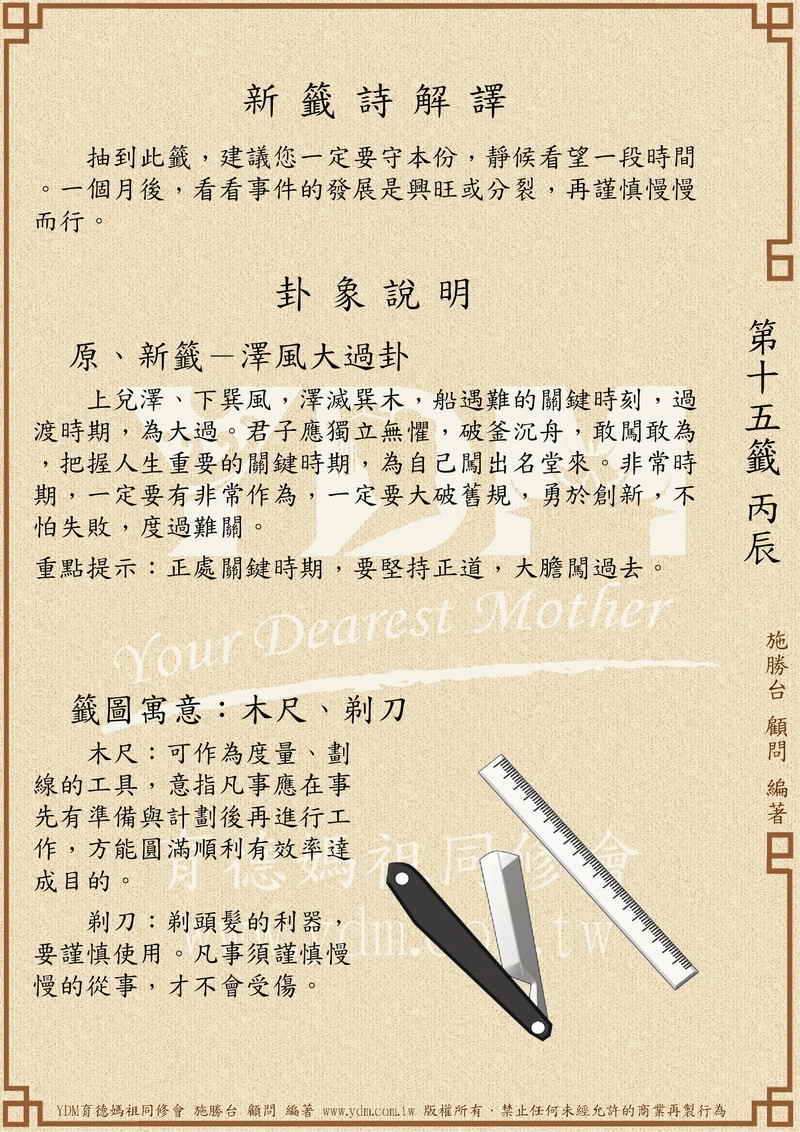 新籤詩解譯
抽到此籤，建議您一定要守本份，靜候看望一段時間
。一個月後，看看事件的發展是興旺或分裂，再謹慎慢慢
而行。
卦象說明
原、新籤－澤風大過卦
上兌澤、下巽風，澤滅巽木，船遇難的關鍵時刻，過
渡時期，為大過。君子應獨立無懼，破釜沉舟，敢闖敢為
，把握人生重要的關鍵時期，為自己闖出名堂來。非常時
期，一定要有非常作為，一定要大破舊規，勇於創新，不
怕失敗，度過難關。
重點提示：正處關鍵時期，要堅持正道，大膽闖過去。
籤圖寓意：木尺、剃刀
木尺：可作為度量、劃
線的工具，意指凡事應在事
先有準備與計劃後再進行工
作，方能圓滿順利有效率達
成目的。
剃刀：剃頭髮的利器，
要謹慎使用。凡事須謹慎慢
慢的從事，才不會受傷。
第十五籤 丙辰
施勝台 顧問 編著
YDM
Your Dearest Mother
育德媽祖同修會
www.ydm.com.tw
YDM育德媽祖同修會 施勝台 顧問 編著 www.ydm.com.tw 版權所有．禁止任何未經允許的商業再製行為